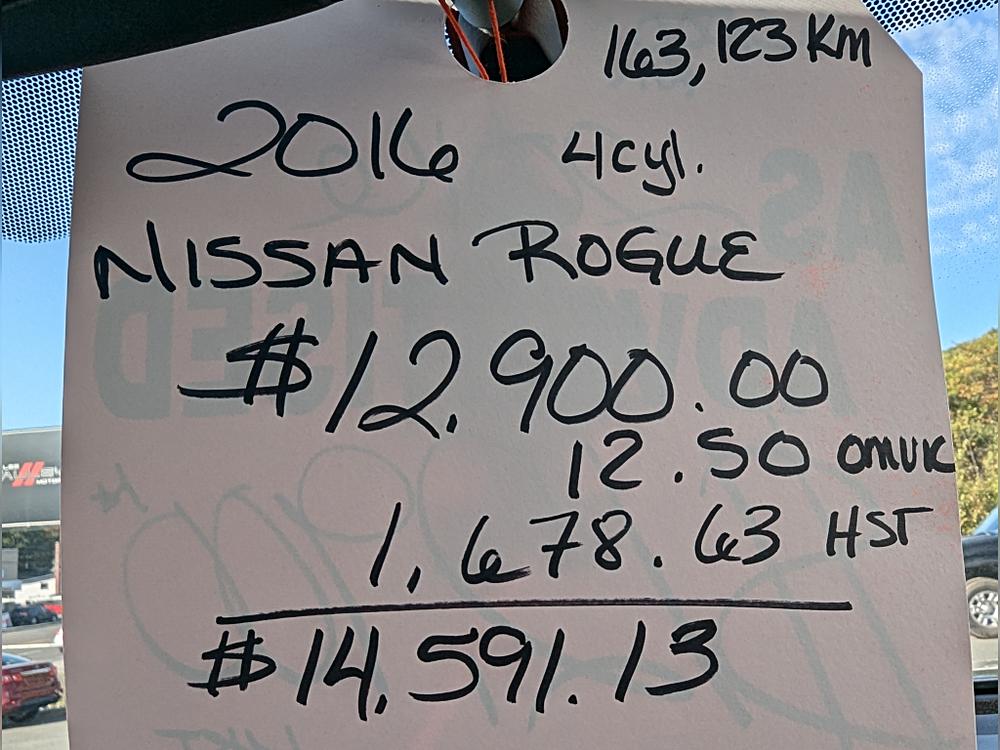 163,123 Km
2016 4cyl.
NISSAN ROGUE
$12,900.00
12.50 OMVIC
1,678.63 HST
$14,591.13
AS
ADVERTISED